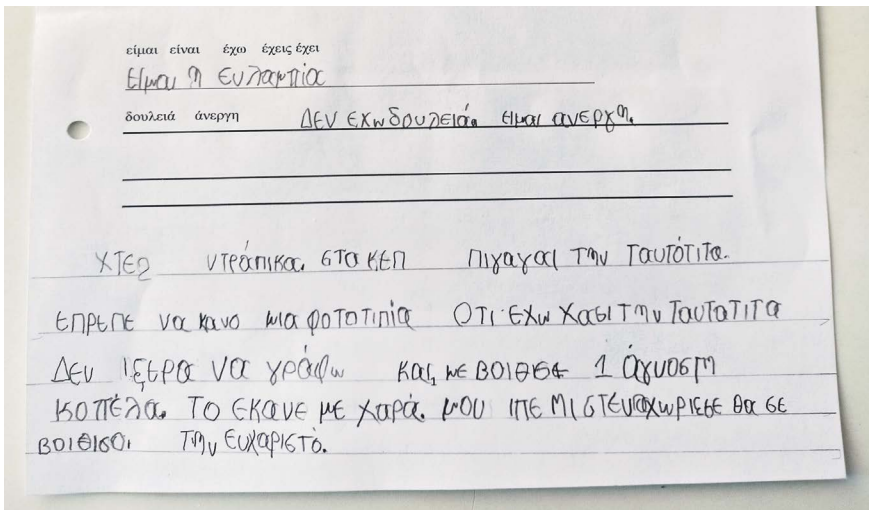 είμαι είναι έχω έχεις έχει
Είμαι η Ευλαμπία
δουλειά άνεργη ΔΕΝ ΕΧω δουλειά. Είμαι ανεργη.
ΧΤΕΣ ντράπικα. στα ΚΕΠ πιγαγαι την ταυτότιτα.
ΕΠΡΕΠΕ να κανο μια φοτοτιπία ΟΤΙ ΕΧω Χασι την ταυτατιτα
ΔΕν ιξερα να γράφω και, με βοιθισε 1 άγνοστη
κοπέλα. ΤΟ ΕΚανε με χαρά. μου ιπε μι στεναχωριεσε θα σε
βοιθισο. την ευχαριστό.